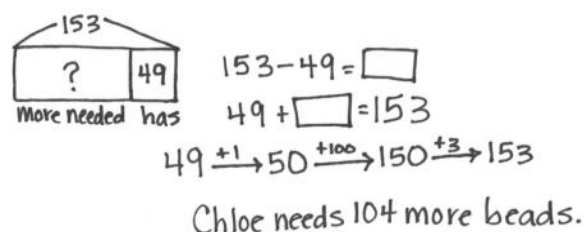 153
? 49
more needed has
153-49=
49+ =153
49 +1 50 +100 150 +3 153
Chloe needs 104 more beads.